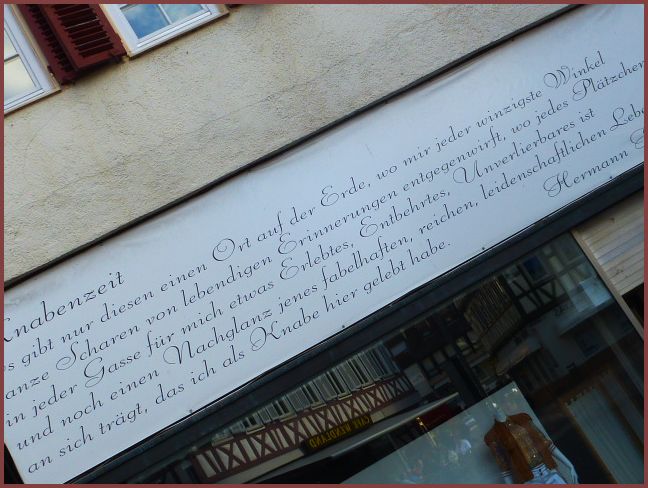 Knabenzeit
es gibt nur diesen einen Ort auf der Erde, wo mir jeder winzigste Winkel
ganze Scharen von lebendigen Erinnerungen entgegenwirft, wo jedes Plätzchen
in jeder Gasse für mich etwas Erlebtes, Entbehrtes, Unverlierbares ist
und noch einen Nachglanz jenes fabelhaften, reichen, leidenschaftlichen Lebe
an sich trägt, das ich als Knabe hier gelebt habe.
Hermann
CAFE WENDLAND